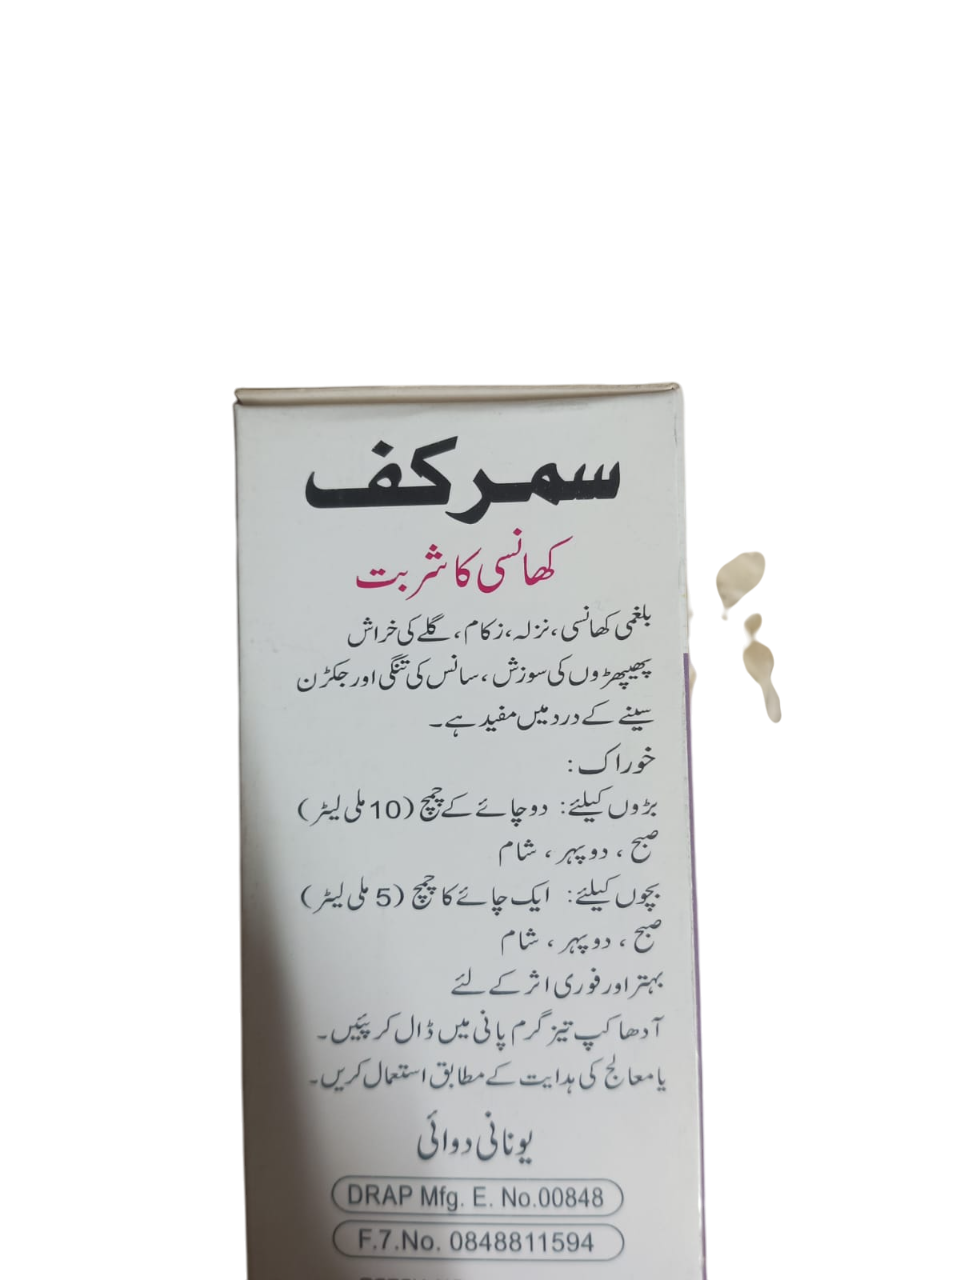 سمرکف
کھانسی کا شربت
بلغمی کھانسی، نزلہ، زکام، گلے کی خراش
پھیپھڑوں کی سوزش، سانس کی تنگی اور جکڑن
سینے کے درد میں مفید ہے۔
خوراک:
بڑوں کیلئے: دو چائے کے چمچ (10 ملی لیٹر)
صبح ، دوپہر ، شام
بچوں کیلئے: ایک چائے کا چمچ (5 ملی لیٹر)
صبح ، دوپہر ، شام
بہتر اور فوری اثر کے لئے
آدھا کپ تیز گرم پانی میں ڈال کر پئیں۔
یا معالج کی ہدایت کے مطابق استعمال کریں۔
یونانی دوائی
DRAP Mfg. E. No.00848
F.7.No. 0848811594